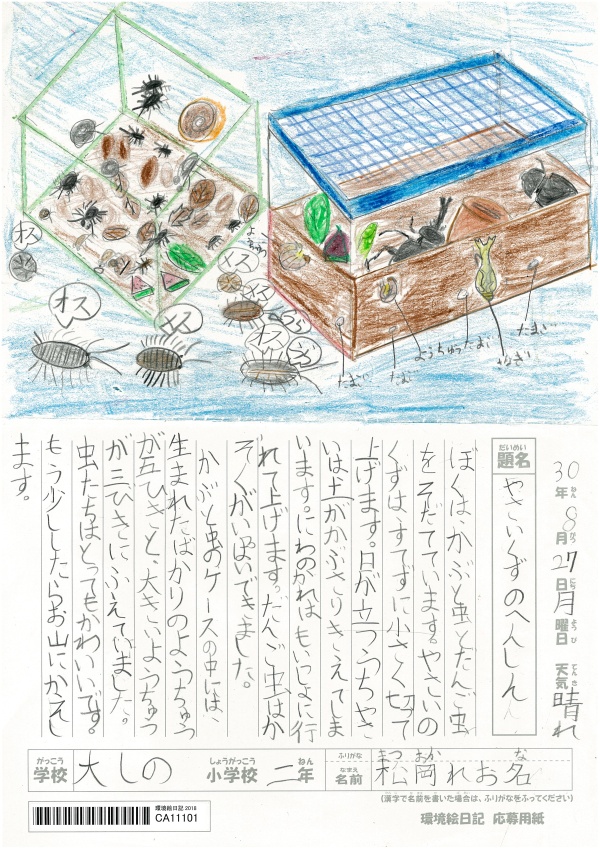 オス
オス
メス
メス
メス
メス
たまご
たまご
ようちゅう
たまご
たまご
30年8月27日月曜日 天気晴れ
ねん がつ にち ようび てんき
だいめい
題名 やさいくずのへんしん
ぼくは、かぶと虫とだんご虫
をそだてています。やさいの
くずは、すてずに小さく切って
上げます。日が立つうちやさ
いは土がかぶさりきえてしま
います。にわのかれはもいっしょに行
れて上げます。だんご虫はか
ぞくがいっぱいできました。
かぶと虫のケースの中には、
生まれたばかりのようちゅう
が五ひきと、大きいようちゅう
が三ひきにふえていました。
虫たちはとってもかわいいです。
もう少ししたらお山にかえし
ます。
がっこう しょうがっこう ねん ふりがな まつ おか な
学校 大しの 小学校 二年 なまえ 名前 松岡れお名
(漢字で名前を書いた場合は、ふりがなをふってください)
環境絵日記 2018
CA11101
環境絵日記 応募用紙